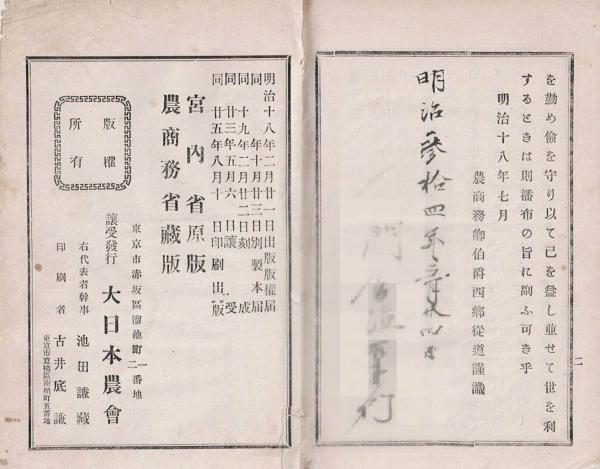 を勤め儉を守り以て己を益し並せて世を利
するときは則播布の旨に副ふ可き乎
明治十八年七月
農商務卿伯爵西鄕從道謹識
二
明治參拾四年
門
明治十八年二月廿一日出版版權屆
同年十月廿三日別製本屆
同十九年二月廿二日刻成
同廿三年五月六日讓受
同廿五年八月十日印刷出版
宮內省原版
農商務省藏版
版權
所有
東京市赤坂區溜池町一二番地
讓受發行 大日本農會
右代表者幹事 池田謙藏
印刷者 古井底謙
東京市京橋區南鞘町五番地